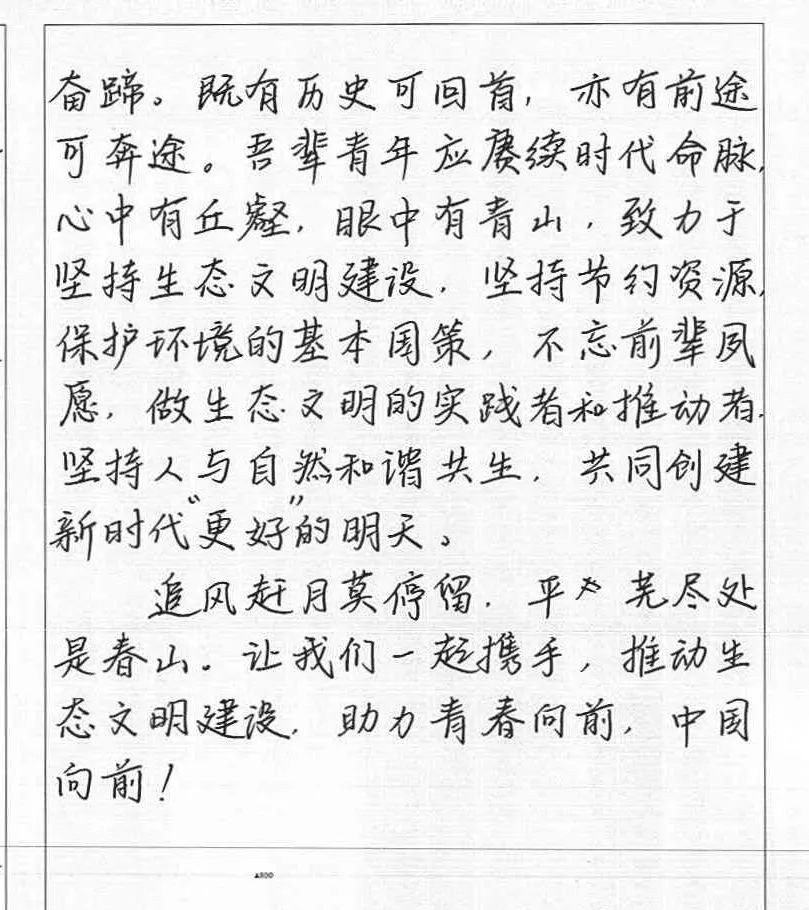 奋蹄。既有历史可回首，亦有前途
可奔途。吾辈青年应赓续时代命脉，
心中有丘壑，眼中有青山，致力于
坚持生态文明建设，坚持节约资源，
保护环境的基本国策，不忘前辈夙
愿，做生态文明的实践者和推动者，
坚持人与自然和谐共生，共同创建
新时代“更好”的明天。
追风赶月莫停留，平芜尽处
是春山。让我们一起携手，推动生
态文明建设，助力青春向前，中国
向前！